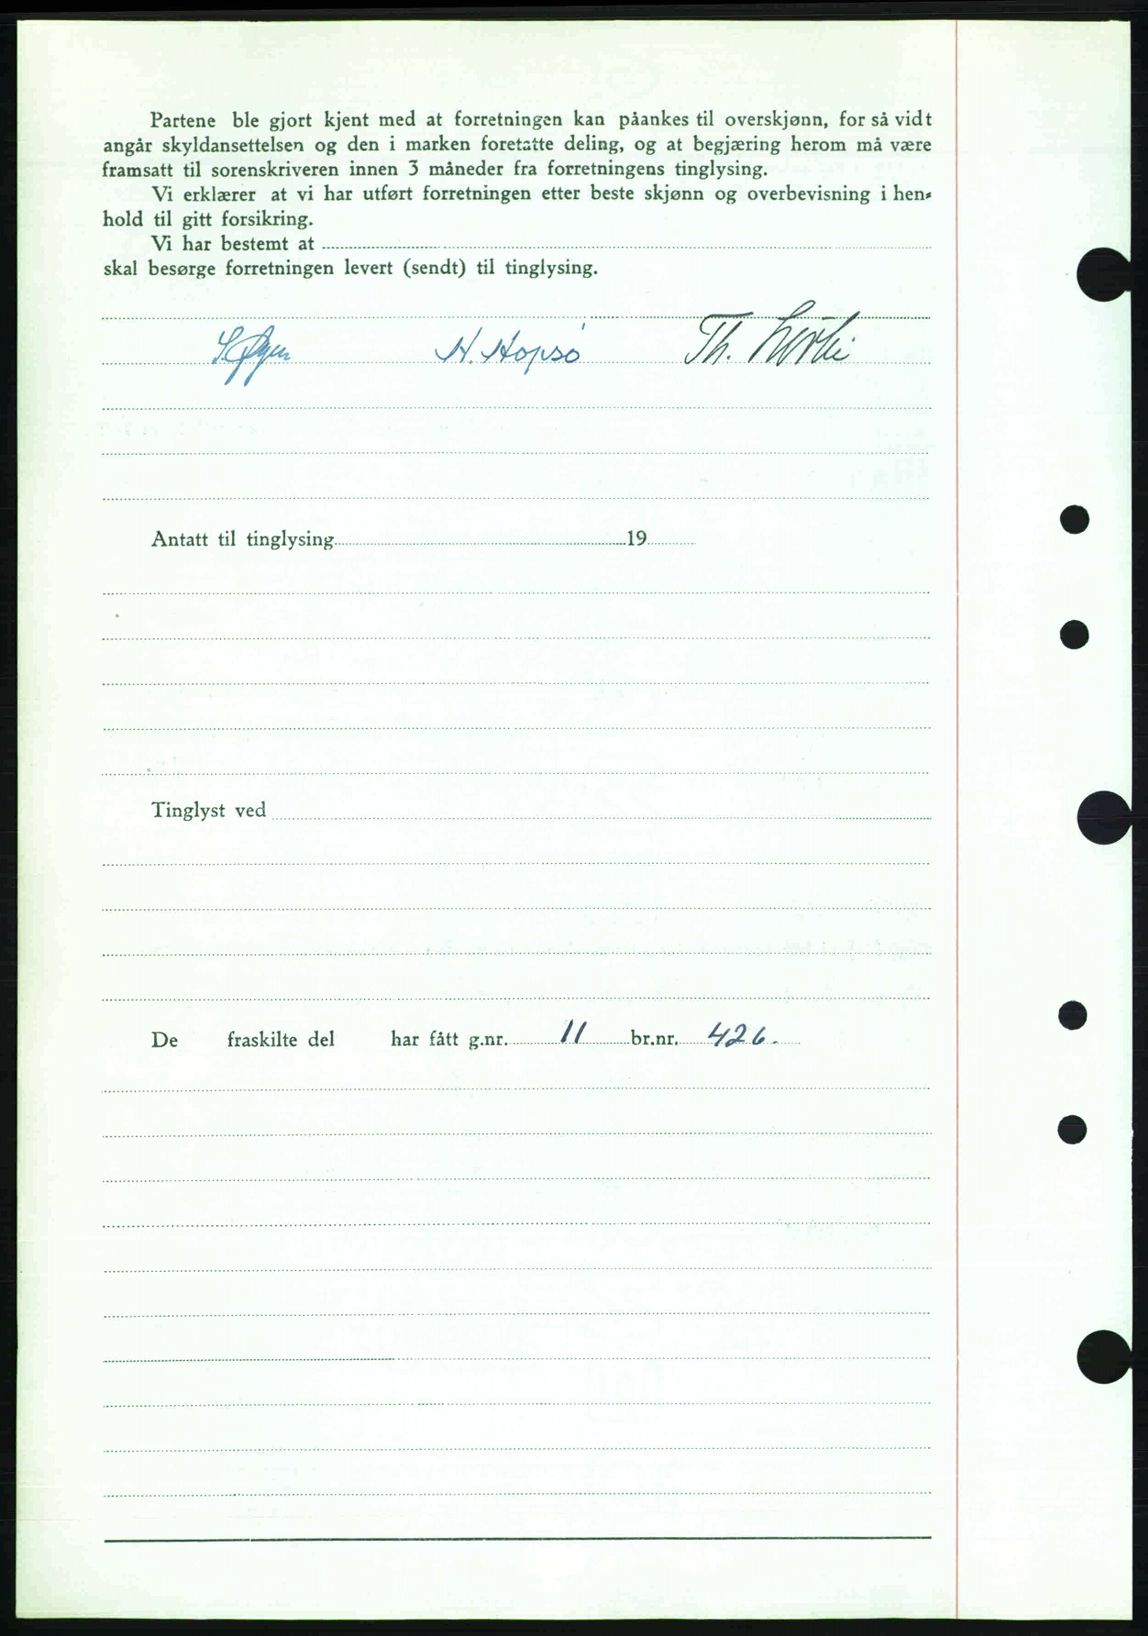 Partene ble gjort kjent med at forretningen kan påankes til overskjønn, for så vidt
angår skyldansettelsen og den i marken foretatte deling, og at begjæring herom må være
framsatt til sorenskriveren innen 3 måneder fra forretningens tinglysing.
Vi erklærer at vi har utført forretningen etter beste skjønn og overbevisning i hen-
hold til gitt forsikring.
Vi har bestemt at
skal besørge forretningen levert (sendt) til tinglysing.
S. Øyen N. Hopsø Th.
Antatt til tinglysing 19
Tinglyst ved
De fraskilte del har fått g.nr. 11 br.nr. 426.